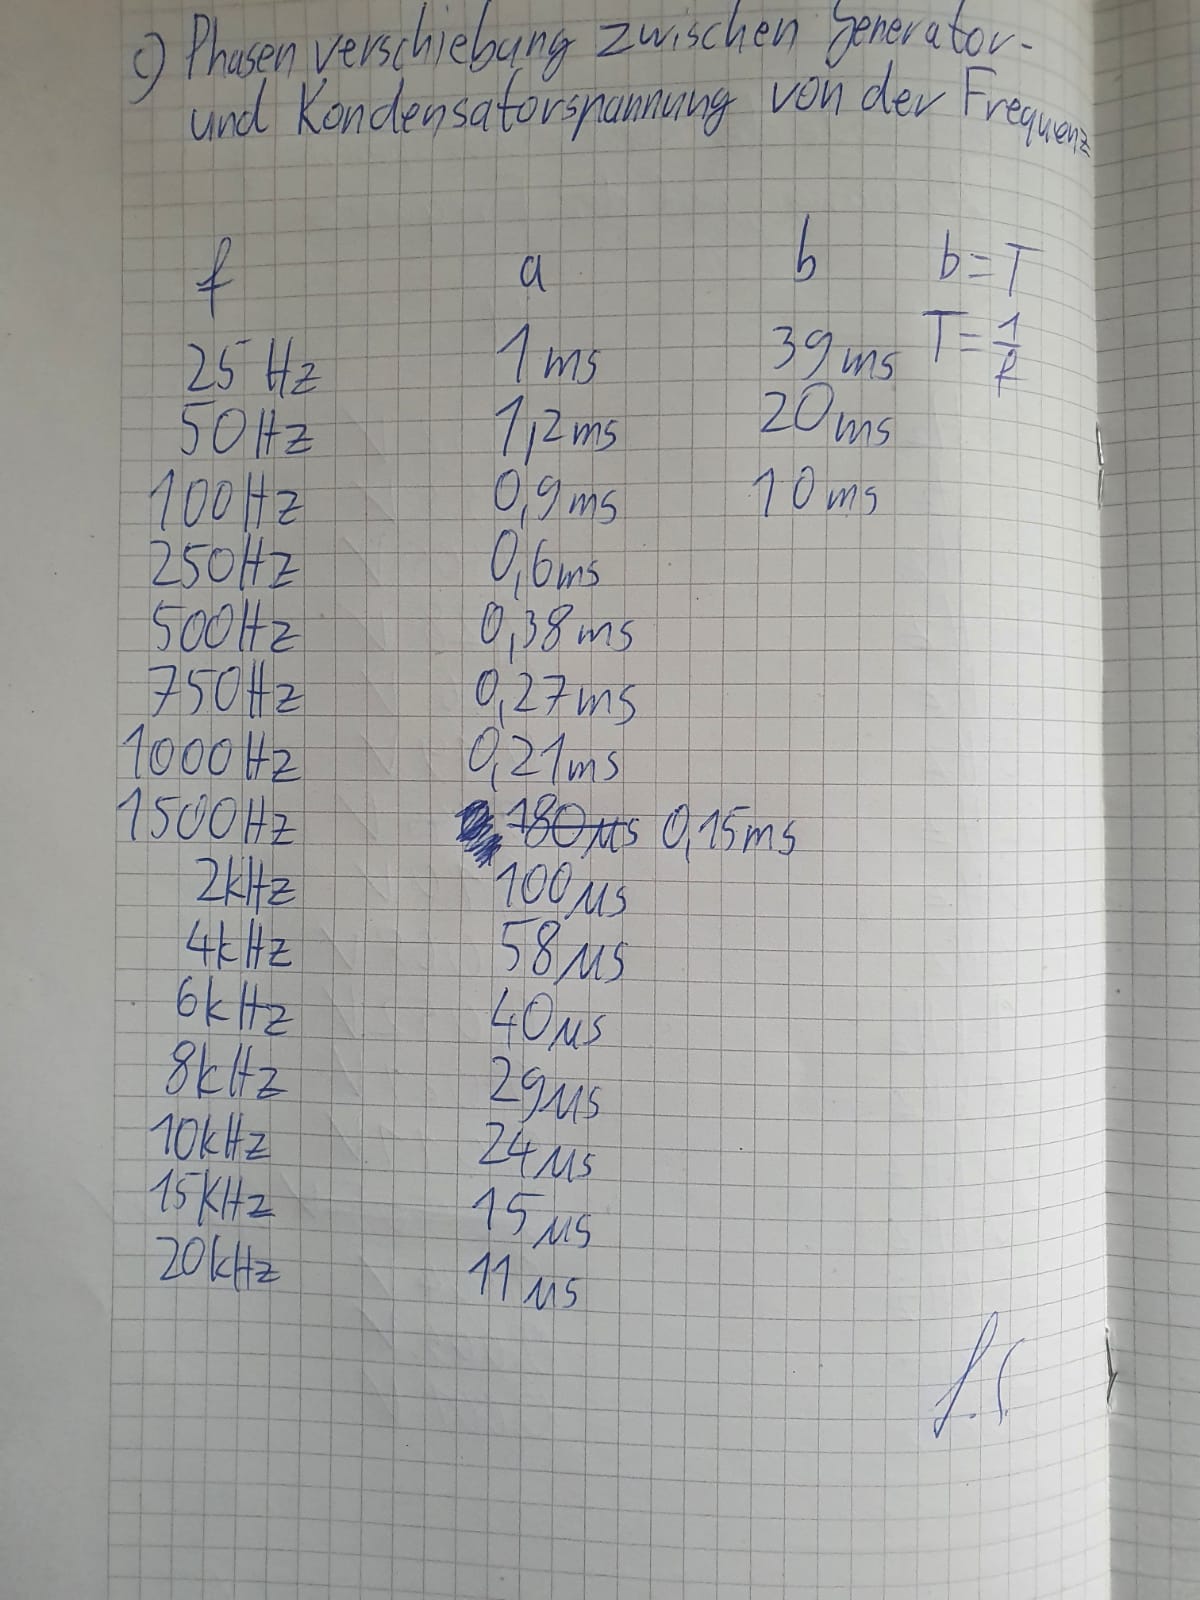 c) Phasenverschiebung zwischen Generator-
und Kondensatorspannung von der Frequenz
f a b b=T
25 Hz 1ms 39ms T=1/f
50Hz 1,2ms 20ms
100Hz 0,9ms 10ms
250Hz 0,6ms
500Hz 0,38ms
750Hz 0,27ms
1000Hz 0,21ms
1500Hz 180µs 0,15ms
2kHz 100µs
4kHz 58µs
6kHz 40µs
8kHz 29µs
10kHz 24µs
15kHz 15µs
20kHz 11µs